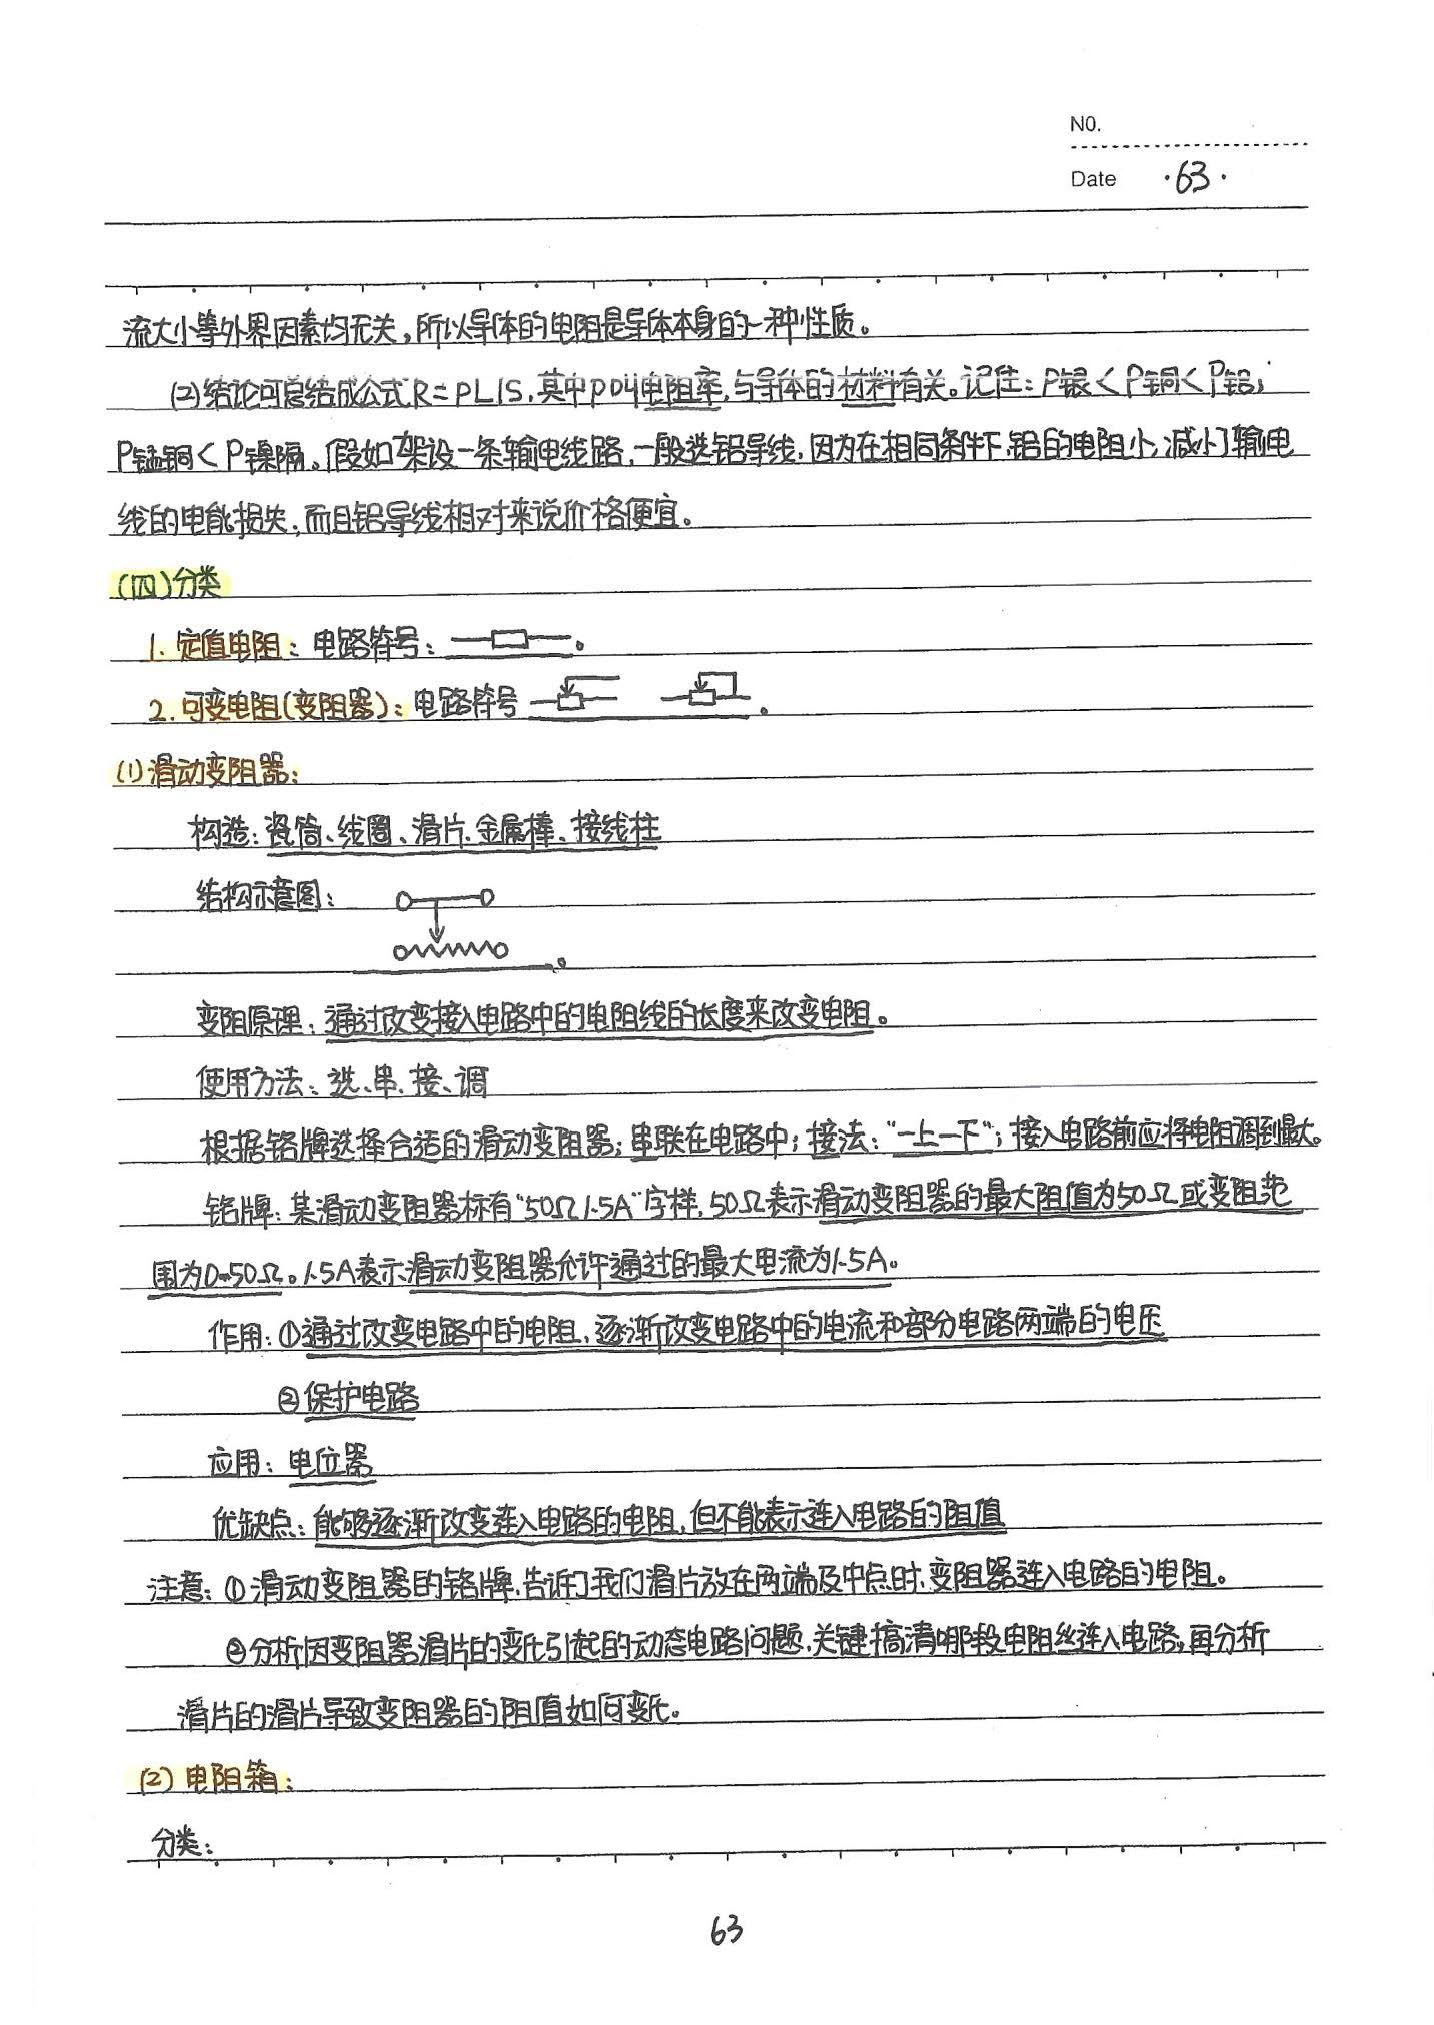 NO.
Date ·63·
流大小等外界因素均无关,所以导体的电阻是导体本身的一种性质。
(2)结论可总结成公式R=ρL/S,其中ρ叫电阻率,与导体的材料有关。记住:ρ银<ρ铜<ρ铝,
ρ锰铜<ρ镍隔。假如架设一条输电线路,一般选铝导线,因为在相同条件下,铝的电阻小,减小了输电
线的电能损失,而且铝导线相对来说价格便宜。
(四)分类
1.定值电阻:电路符号: 。
2.可变电阻(变阻器):电路符号 。
(1)滑动变阻器:
构造:瓷筒、线圈、滑片、金属棒、接线柱
结构示意图: 。
变阻原理:通过改变接入电路中的电阻线的长度来改变电阻。
使用方法:选、串、接、调
根据铭牌选择合适的滑动变阻器;串联在电路中;接法:"一上一下";接入电路前应将电阻调到最大。
铭牌:某滑动变阻器标有"50Ω1.5A"字样,50Ω表示滑动变阻器的最大阻值为50Ω或变阻范
围为0-50Ω。1.5A表示滑动变阻器允许通过的最大电流为1.5A。
作用:①通过改变电路中的电阻,逐渐改变电路中的电流和部分电路两端的电压
②保护电路
应用:电位器
优缺点:能够逐渐改变连入电路的电阻,但不能表示连入电路的阻值
注意:①滑动变阻器的铭牌,告诉了我们滑片放在两端及中点时,变阻器连入电路的电阻。
②分析因变阻器滑片的变化引起的动态电路问题,关键搞清哪段电阻丝连入电路,再分析
滑片的滑片导致变阻器的阻值如何变化。
(2)电阻箱:
分类:
63